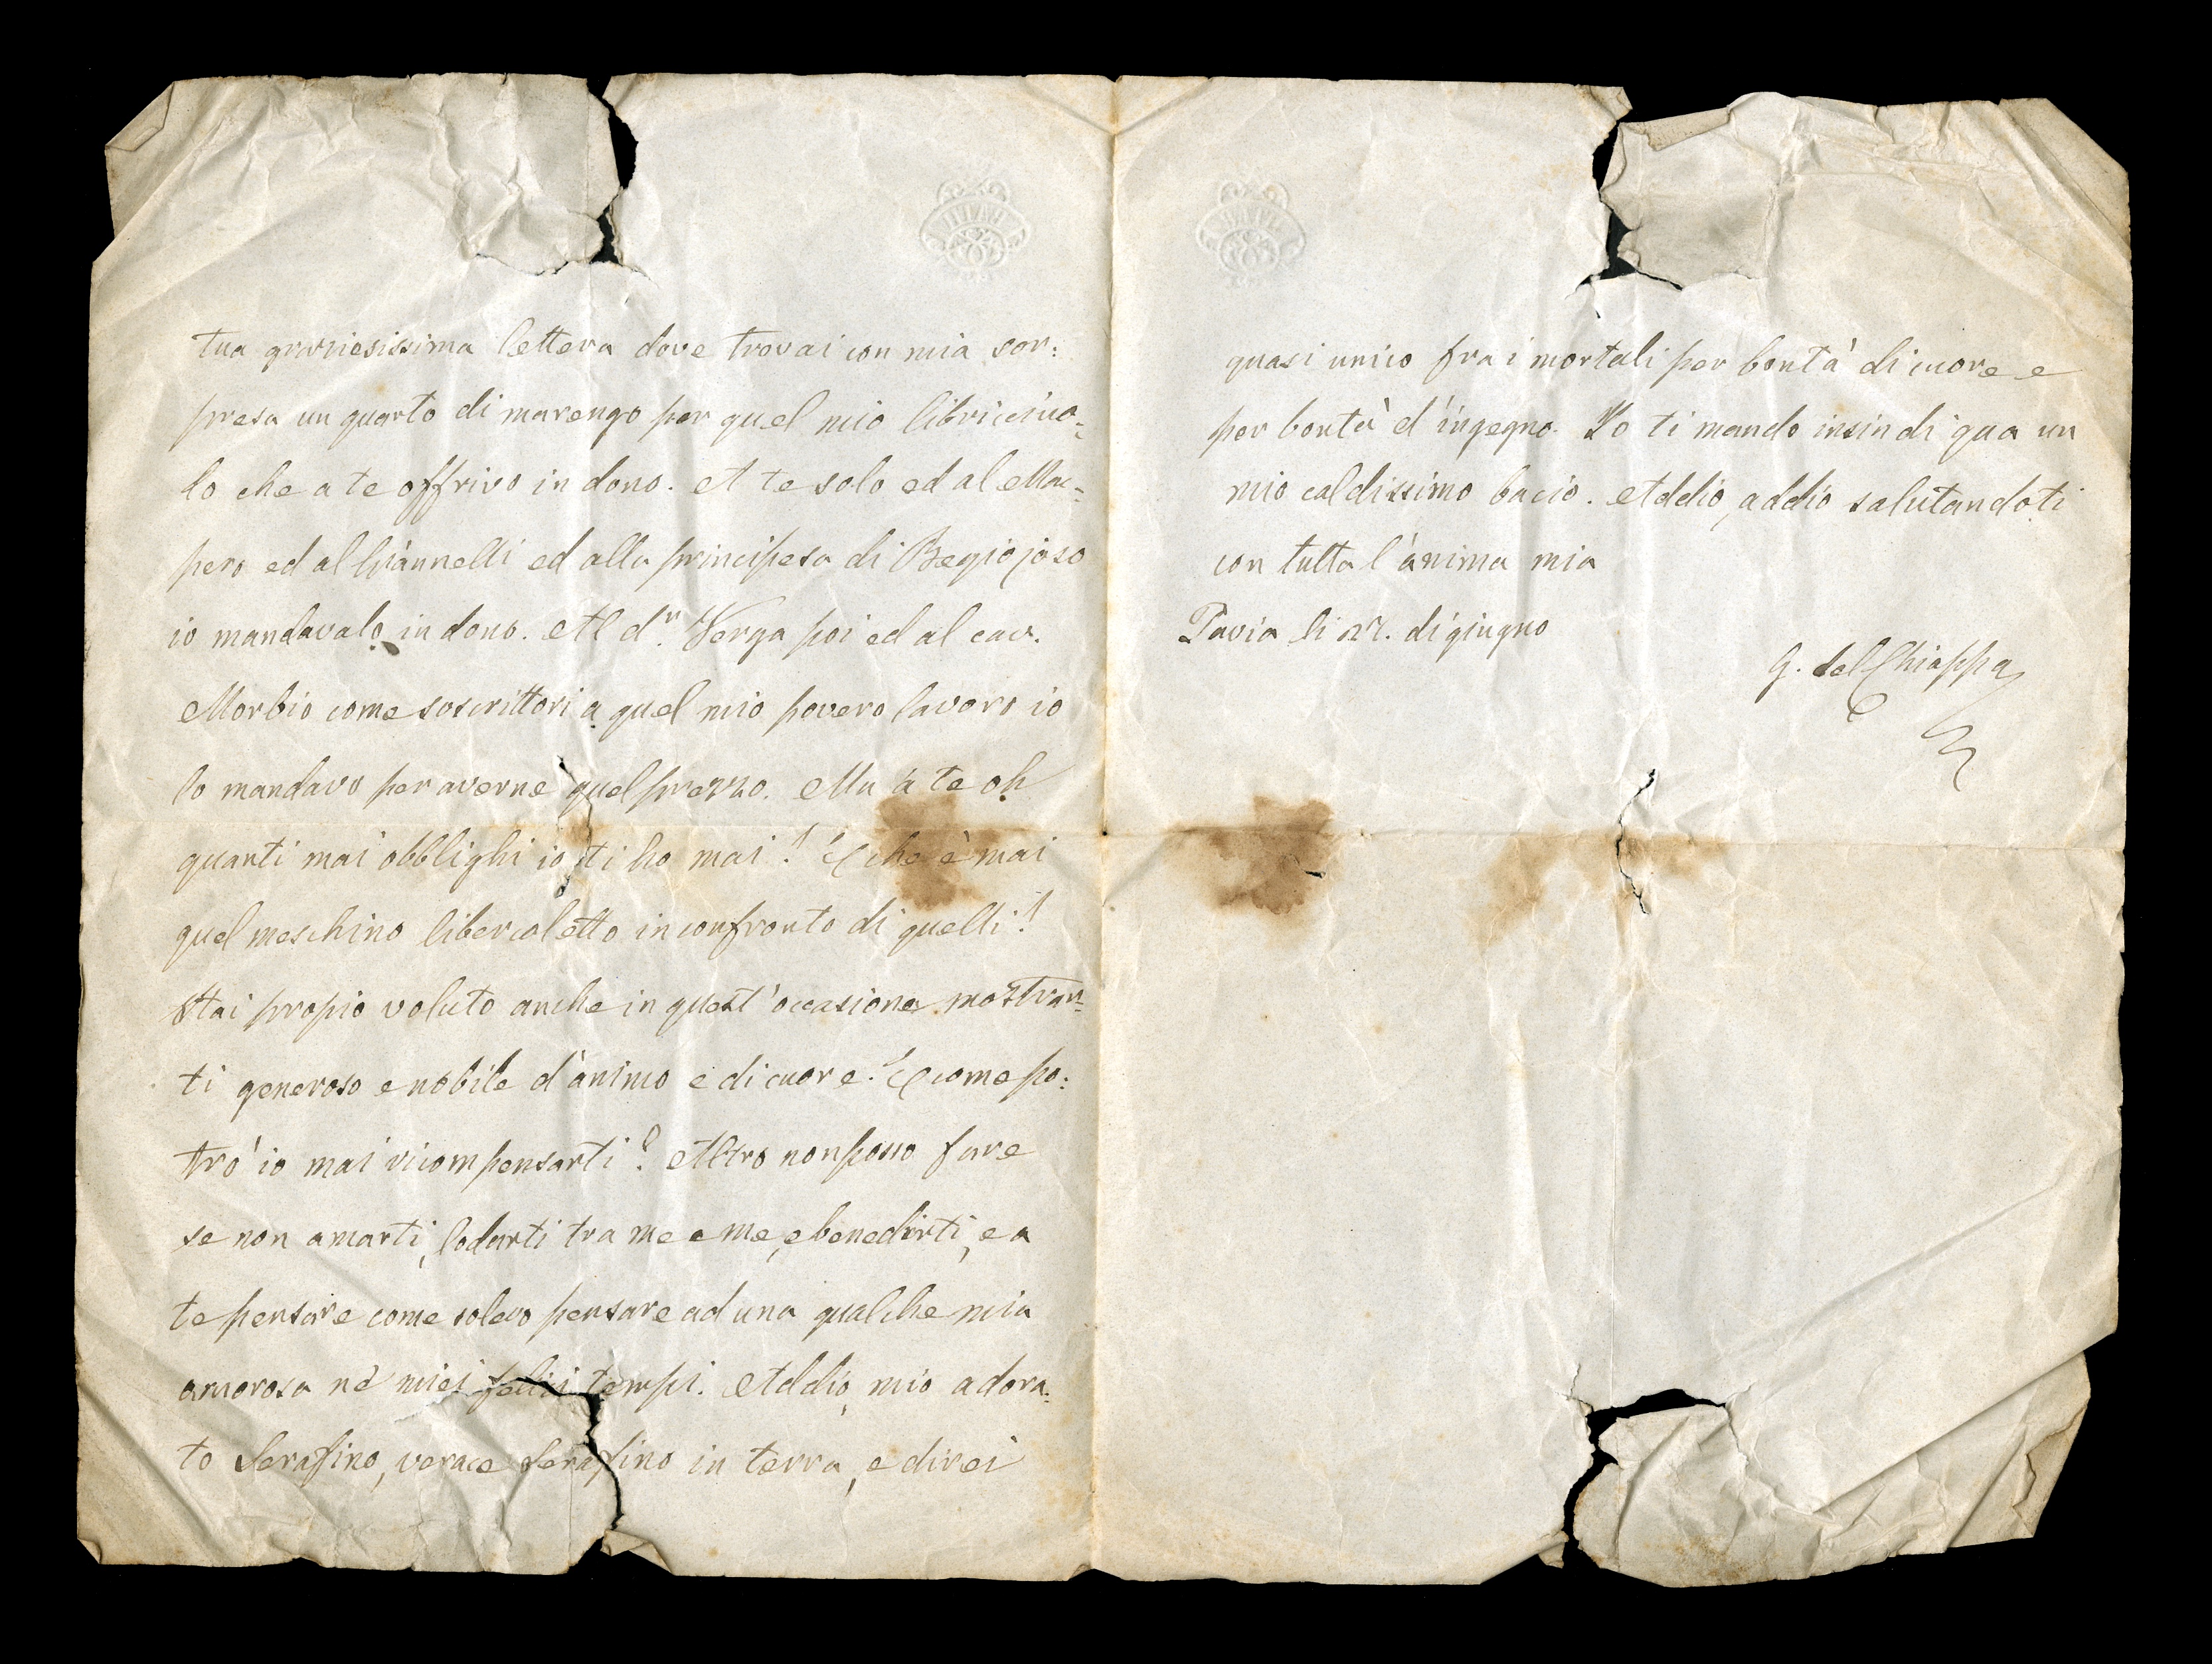 tua graziosissima lettera dove trovai con mia sor:
presa un quarto di marengo per quel mio libriccino=
lo che a te offrivo in dono. A te solo ed al Mac=
pero ed al Giannelli ed alla principesa di Begiojoso
io mandavalo in dono. Al dr. Verga poi ed al cav.
Morbio come soscrittori a quel mio povero lavoro io
lo mandavo per averne quel prezzo. Ma a te oh
quanti mai obblighi io ti ho mai! E che è mai
quel meschino libercoletto in confronto di quelli!
Hai propio voluto anche in quest'occasione mostrar=
ti generoso e nobile d'animo e di cuore. E come po:
trò io mai ricompensarti? Altro non posso fare
se non amarti, lodarti tra me e me, e benedirti, e a
te pensare come solevo pensare ad una qualche mia
amorosa ne' miei felici tempi. Addio, mio adora:
to Serafino, verace Serafino in terra, e direi
quasi unico fra i mortali per bontà di cuore e
per bontà d'ingegno. Io ti mando insin di qua un
mio caldissimo bacio. Addio, addio salutandoti
con tutta l'anima mia
Pavia li 27. di giugno
G. del Chiappa